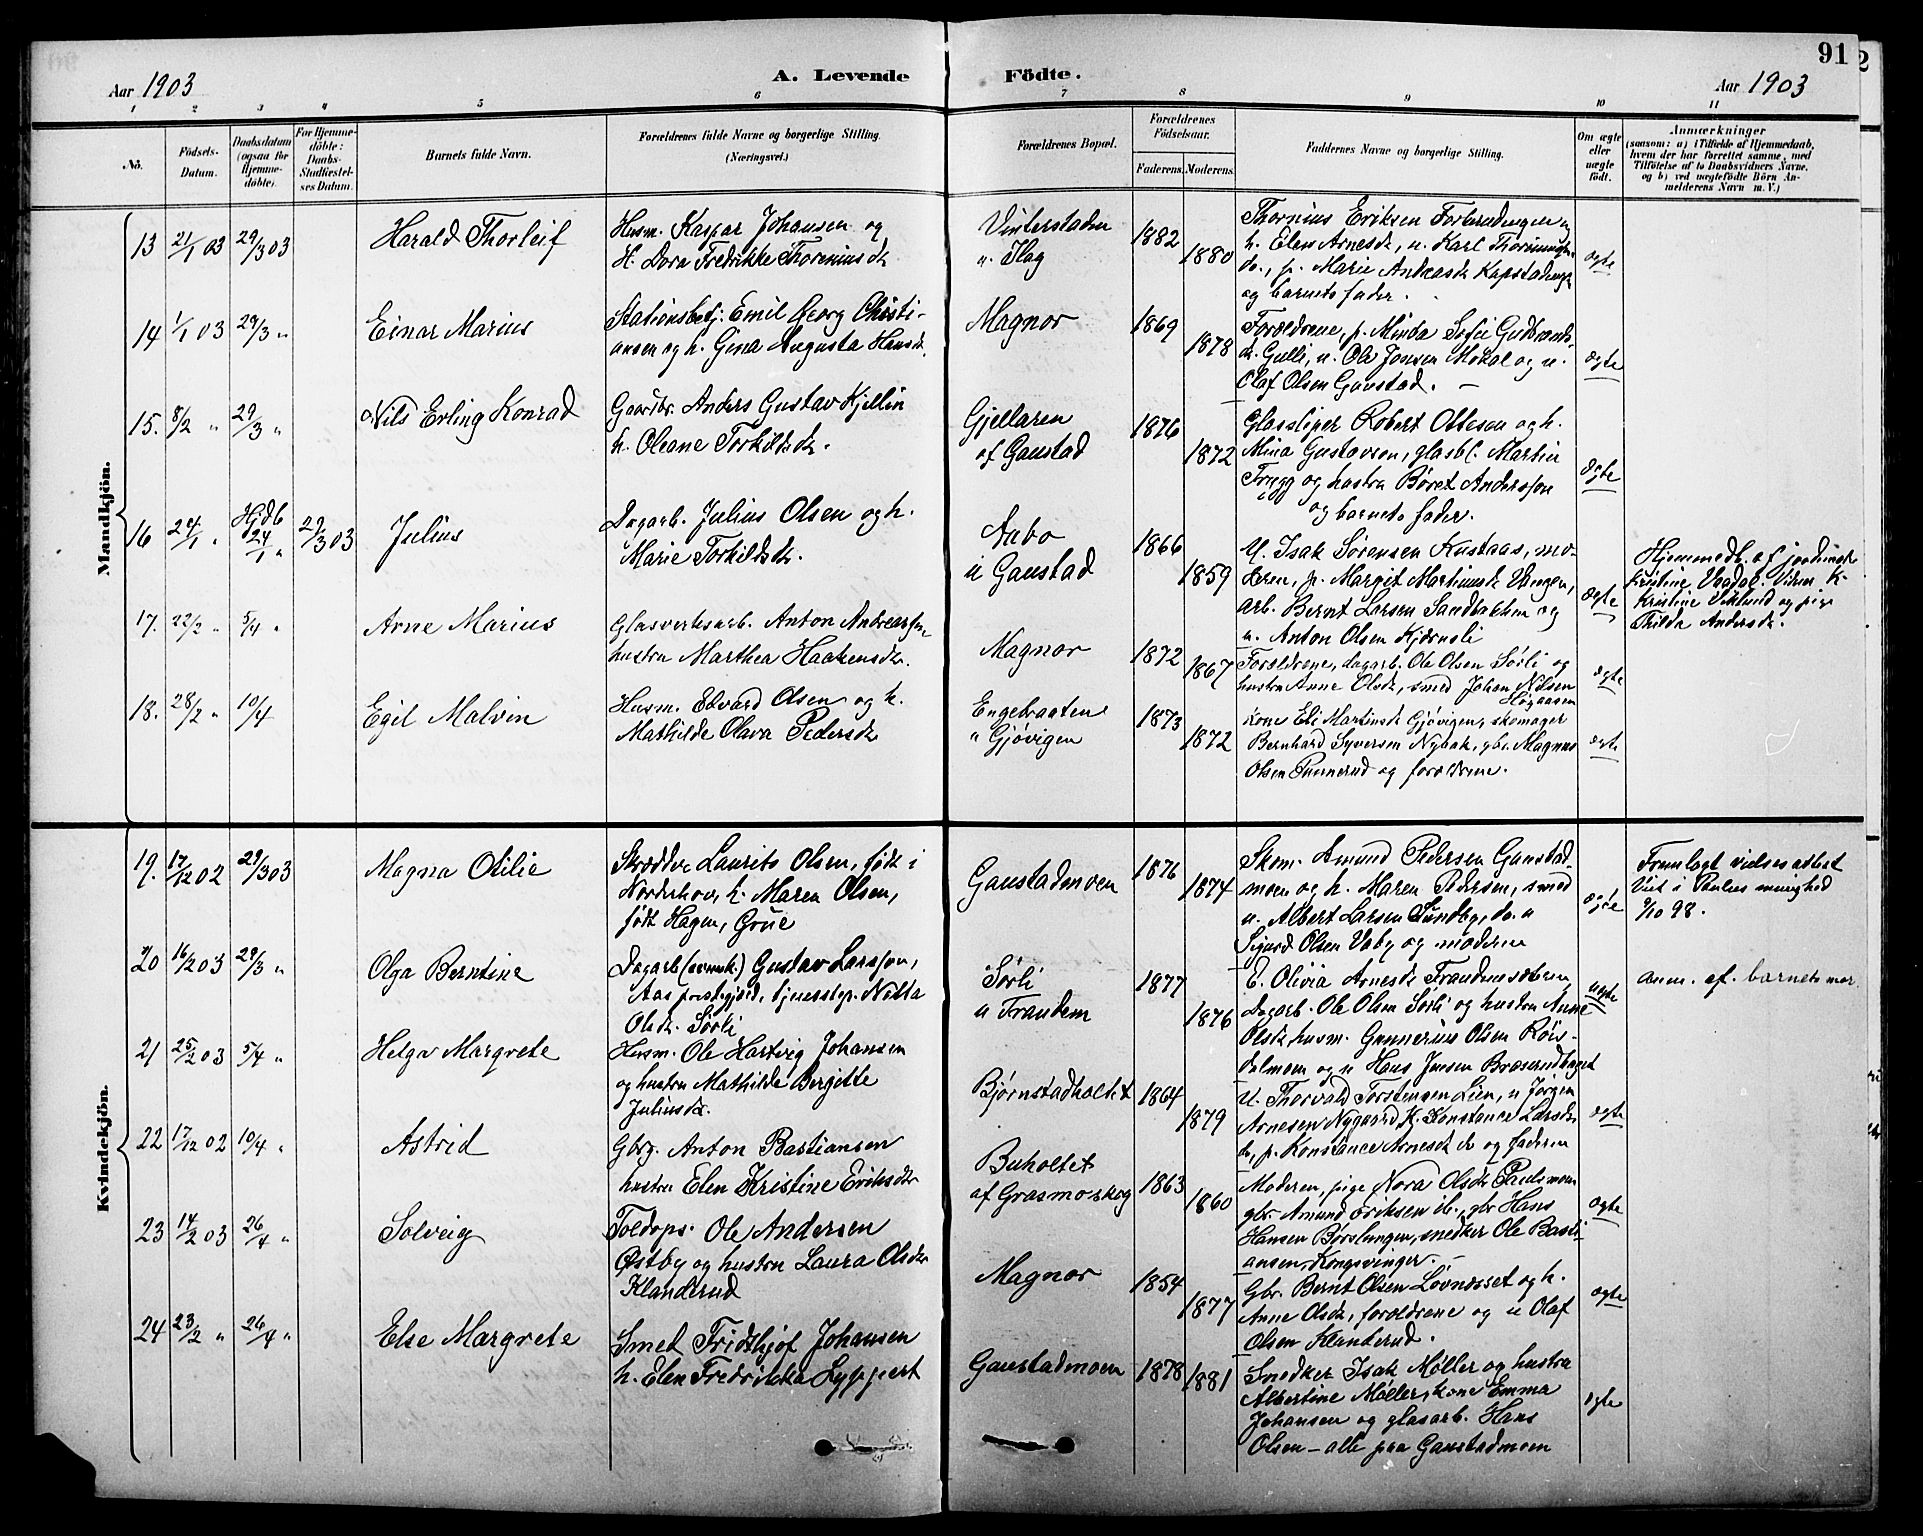 91
Aar 1903
A. Levende Födte.
Aar 1903
1 2 3 4 5 6 7 8 9 10 11
No.
Födsels-Datum.
Daabsdatum (ogsaa for Hjemme-döbte).
For Hjemme-döbte: Daabs-Stadfæstel-ses Datum.
Barnets fulde Navn.
Forældrenes fulde Navne og borgerlige Stilling. (Næringsvei.)
Forældrenes Bopæl.
Forældrenes Födselsaar.
Faderens. Moderens.
Faddernes Navne og borgerlige Stilling.
Om ægte eller uægte födt.
Anmærkninger
(saasom: a) i Tilfælde af Hjemmedaab,
hvem der har forrettet samme, med
Tilföielse af to Daabsvidners Navne,
og b) ved uægtefödte Börn An-
melderens Navn m. V.)
Mandkjön.
13 21/1 03 29/3 03 Harald Thorleif
Husm. Kaspar Johansen og
H. Dora Fredrikke Thoreniusdr.
Vinterstaden
u. Ilag
1882 1880
Thornius Eriksen
h. Elen Arnesdr., u. Karl
do., p. Marie Andreasdr
og barnets fader.
ægte
14 1/1 03 29/3 " Einar Marius
Stationsbetj. Emil Georg Christi-
ansen og h. Gina Augusta Hansdr.
Magnor
1869 1878
Forældrene, p. Minda Sofie Gudbrands-
dr. Gulli, u. Ole Jonsen Møkal og u.
Olaf Olsen Gaustad. –
ægte
15. 8/2 " 29/3 " Nils Erling Konrad
Gaardbr. Anders Gustav Kjellin
h. Oleane Torkildsdr.
Gjellaren
af Gaustad
1876 1872
Glassliper Robert Ottesen og h.
Mina Gustavson, glasbl. Martin
Frygg og hustru Børet Andersson
og barnets fader.
ægte
16 24/1 " Hjdb 24/1 " 29/3 03 Julius
Dagarb. Julius Olsen og h.
Marie Torkildsdr.
Aabo
u Gaustad
1866 1859
U. Isak Sørensen Kustaas, mo-
deren, p. Margit Martinsdr Vangen,
arb. Bernt Larsen Sandbakken og
u. Anton Olsen Kjærnsli
ægte
Hjemmedb. af jordmoder
Kristine Vaadal. Vidn. K.
Kristine Viklund og pige
Thilda Andersdr.
17. 22/2 " 5/4 " Arne Marius
Glasverksarb. Anton Andreassen
hustru Marthea Haakensdr.
Magnor
1872 1867
Forældrene, dagarb. Ole Olsen Sørli og
hustru Anne Olsdr, smed Johan Nilsen
Høgaasen
ægte
18. 28/2 " 10/4 Egil Malvin
Husm. Edvard Olsen og h.
Mathilde Olava Pedersdr
Engebraaten
u Gjøvigen
1873 1872
kone Eli Martinsdr Gjøvigen, skomager
Bernhard Syversen Nybak, gbr. Magnus
Olsen Punnerud og forældrene.
ægte
Kvindekjön.
19. 17/12 02 29/3 03 Magna Otilie
Skrædder Laurits Olsen, født i
Norderhov, h. Maren Olsen,
født Hagen, Grue
Gaustadmoen
1876 1874
Skom. Amund Pedersen Gaustad-
moen og h. Maren Pedersen, smed
u. Albert Larsen Sundby, do. u
Sigurd Olsen Vaby og moderen
ægte
Fremlagt vielsesattest
Viet i Paulus menighed
9/10 98.
20 16/2 03 29/3 " Olga Berntine
Dagarb (svensk.) Gustav Larsson,
Aas prestegjeld, tjenestep. Nilla
Olsdr. Sørli
Sørli
u Traudem
1877 1876
E. Olivia Arnesdr Traudemsæteren
Dagarb. Ole Olsen Sørli og hustru Anne
Olsdr, husm. Gunnerius Olsen Røis-
dalmoen og u Hans Jensen Braserudhaget
uægte
anm. af barnets mor.
21 25/2 03 5/4 " Helga Margrete
Husm. Ole Hartvig Johansen
og hustru Mathilde Bergitte
Juliusdr.
Bjørnstadholtet
1864 1879
U. Thorvald Torstensen Lien, u Jørgen
Arnesen Nygaard, K. Konstance Larsdr
do, p. Konstance Arnesdr do og faderen
ægte
22 17/12 02 10/4 " Astrid
Gbrg. Anton Bastiansen
hustru Elen Kristine Eriksdtr
Buholtet
af Grasmoskog
1863 1860
Moderen, pige Nora Olsdr Paulsmoen
gbr. Amund Eriksen ib., gbr Hans
Hansen Børslungen, snedker Ole Basti-
ansen, Kongsvinger. –
ægte
23 14/2 03 26/4 " Solveig
Toldops. Ole Andersen
Østby og hustru Laura Olsdtr
Klanderud
Magnor
1854 1877
Gbr. Bernt Olsen Løvnæsset og h.
Anne Olsdr, forældrene og u Olaf
Olsen Klanderud.
ægte
24 23/2 " 26/4 " Else Margrete
Smed Fridthjof Johansen
h. Elen Fredrikka Lyppert
Gaustadmoen
1878 1881
Snedker Isak Møller og hustru
Albertine Møller, kone Emma
Johansen og glasarb. Hans
Olsen – alle paa Gaustadmoen
ægte